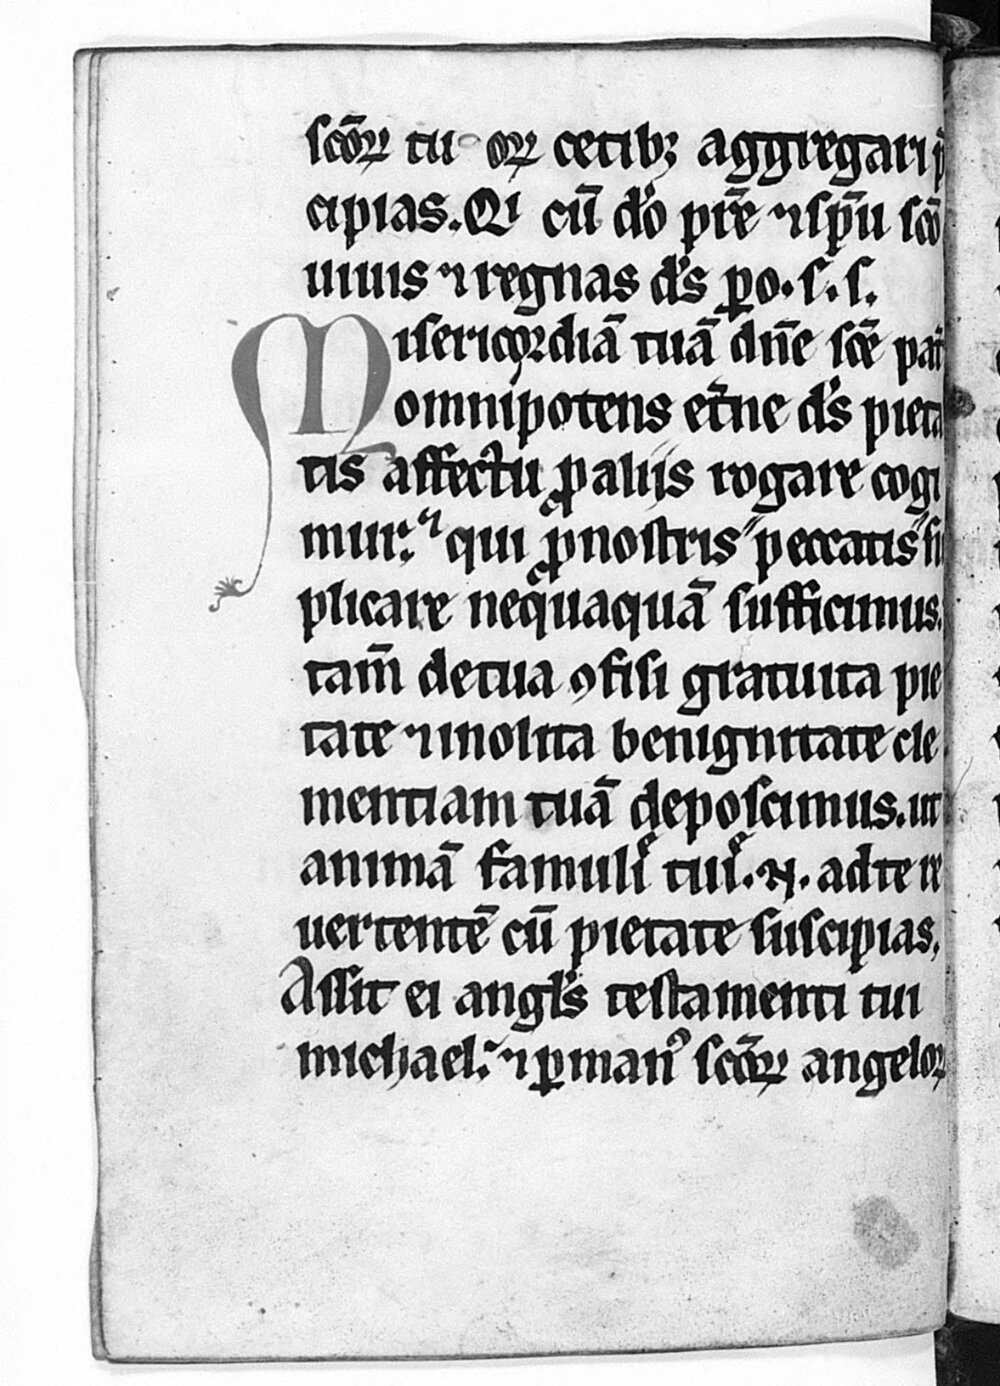 scōꝝ tu oꝝ cetibꝫ aggregari p̄
cipias. Qi cū dō pr̄e ⁊ sp̄u scō
uiuis ⁊ regnas ds̄ ꝑ o. s. s.
Misericordiā tuā dn̄e sc̄e pat̄
omnipotens et̄ne ds̄ pieta
tis affectu ꝓ aliis rogare cogi
mur: qui ꝓ nostris peccatis su
plicare neq̄uaquā sufficimus.
tam̄ de tua ꝯfisi gratuita pie
tate ⁊ inolita benignitate cle
mentiam tuā deposcimus. ut
animā famuli tui .N. ad te re
uertentē cū pietate suscipias.
Assit ei angls̄ testamenti tui
michael. ⁊ ꝑ manꝰ scōꝝ angeloꝝ